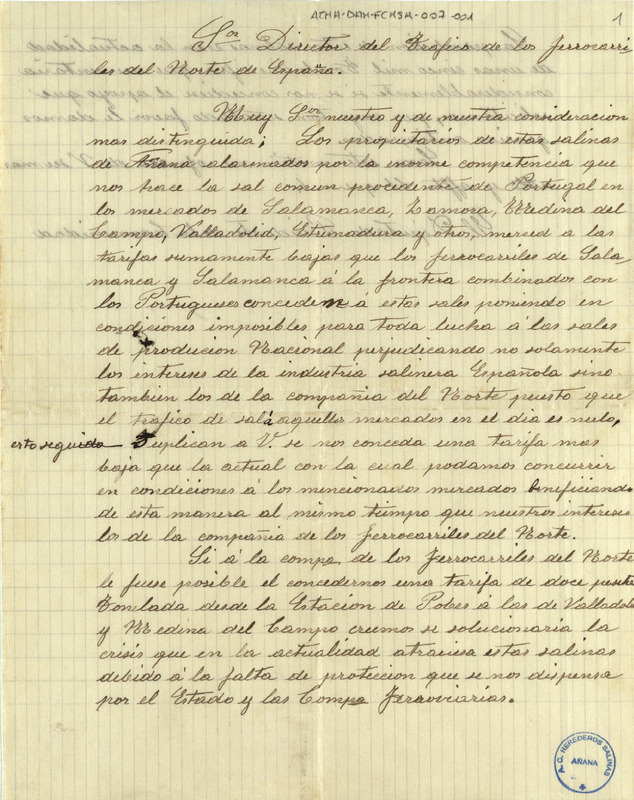 ATHA-DAH-FCHSM-007-001
1
Sor Director del Trafico de los ferrocarri-
les del Norte de España.
Muy Sor nuestro y de nuestra consideracion
mas distinguida; Los propietarios de estas salinas
de Añana alarmados por la inorme competencia que
nos hace la sal comun procedente de Portugal en
los mercados de Salamanca, Zamora, Medina del
Campo, Valladolid, Etremadura y otros, merced a las
tarifas sumamente bajas que los ferrocarriles de Sala-
manca y Salamanca á la frontera combinados con
los Portugueses conceden a estas sales poniendo en
condiciones imposibles para toda lucha á las sales
de producion Nacional perjudicando no solamente
los intereses de la industria salinera Española sino
tambien los de la compañia del Norte puesto que
el trafico de sal á aquellos mercados en el dia es nulo,
esto seguido Suplican a V. se nos conceda una tarifa mas
baja que la actual con la cual podamos concurrir
en condiciones á los mencionados mercados beneficiando
de esta manera al mismo tiempo que nuestros intereses
los de la compañia de los ferrocarriles del Norte.
Si á la compa de los Ferrocarriles del Norte
le fuese posible el concedernos una tarifa de doce pesetas
Tonlada desde la Estacion de Pobes á las de Valladolid
y Medina del Campo creemos se solucionaria la
crisis que en la actualidad atraviesa estas salinas
debido á la falta de proteccion que se nos dispensa
por el Estado y las Compa Ferroviarias.
A.C. HEREDEROS SALINAS
AÑANA